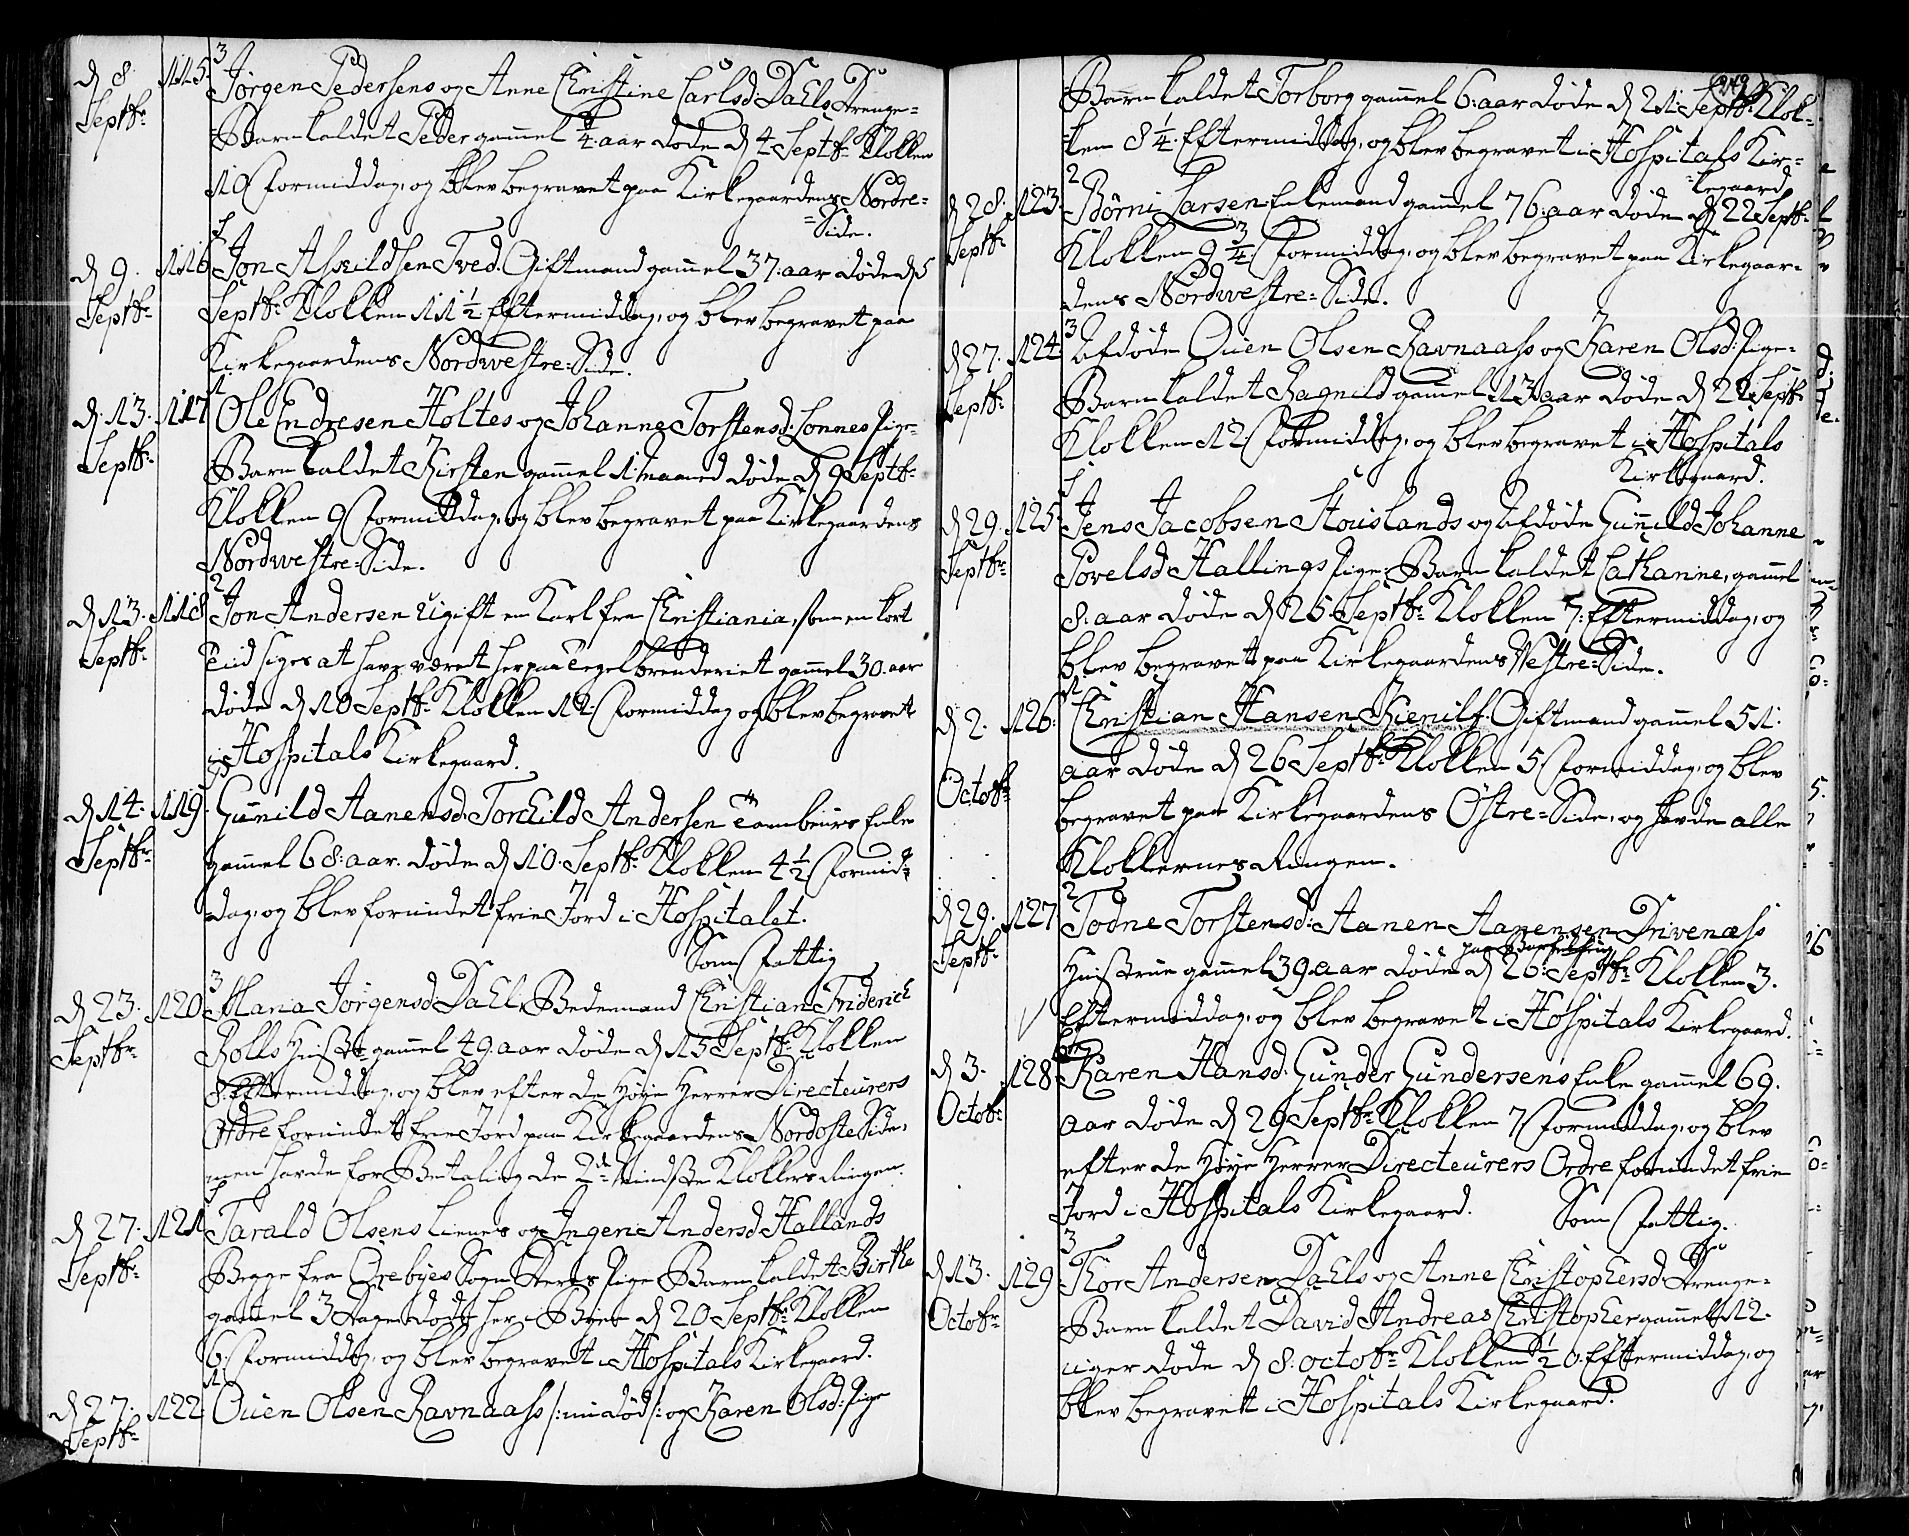 d 8. Septbr. 115. 3 Jørgen Pedersens og Anne Christine Carlsd: Dahls Drenge-
Barn kaldet Peder gammel ¼ aar døde d 4 Septbr. Klokken
10 Formiddag, og blev begravet paa Kirkegaardens Nordre-
=Side.
d 9. Septbr. 116 Jon Asvildsen Tved. Giftmand gammel 37: aar døde d 5
Septbr. Klokken 11½ Eftermiddag, og blev begravet paa
Kirkegaardens Nordwestre=Side.
d. 13. Septbr. 117 1 Ole Endresen Holtes og Johanne Torstensd: Lonnes Pige-
Barn kaldet Kirsten gammel 1 maaned døde d 9 Septbr.
Klokken 9 Formiddag, og blev begravet paa Kirkegaardens
Nordwestre=Side.
d 13. Septbr. 118 2 Jon Andersen Ugift en Karl fra Christiania, som en kort
Tiid siges at have været her paa Tegelbrenderiet gammel 30. aar
døde d 10 Septbr. Klokken 12 Formiddag og blev begravet
i Hospitals Kirkegaard.
d 14. Septbr. 119. Gunild Aanensd. Torchild Andersen Tambeurs Enke
gammel 68: aar. døde d 10. Septbr. Klokken 4½ Formid-
dag, og blev forundet frie Jord i Hospitalet.
Som Fattig
d 23. Septbr. 120 3 Maria Jørgensd Dahl, Bedemand Christian Friderich
Rolls Hustr. gammel 49. aar døde d 15 Septbr. Klokken
8. Eftermiddag, og blev efter de Høye Herrer Directeurers
Ordre forundet frie Jord paa Kirkegaardens Nordoste Side,
men havde for Betaling de 2de mindste Klokkers Ringen.
d 27. Septbr. 121 Tarald Olsens Liennes og Ingeri Andersd Hallands
Begge fra Orebyes Sogn Deres Pige Barn kaldet Birthe
gammel 3 Dage døde her i Byen d 20 Septbr. Klokken
6. Formiddag, og blev begravet i Hospitals Kirkegaard.
d 27. Septbr. 122 Ouen Olsen Ravnaass /: nu død :/ og Karen Olsd: Pige
249
Barn kaldet Torborg gammel 6: aar døde d 21: Septbr. Klok-
ken 8¼. Eftermiddag, og blev begravet i Hospitals Kir=
=kegaard
d 28. Septbr. 123 2 Børni Larsen Enkemand gammel 76: aar døde d 22 Septbr.
Klokken 9¾. Formiddag, og blev begravet paa Kirkegaar-
dens Nordwestre=Side.
d 27. Septbr. 124 3 Afdøde Ouen Olsen Ravnaass og Karen Olsd: Pige-
Barn kaldet Ragnild gammel 13 aar døde d 22 Septbr
Klokken 12 Formiddag, og blev begravet i Hospitals
Kirkegaard.
d 29. Septbr. 125 Jens Jacobsen Stouslands og Afdøde Gunnild Johanne
Povelsd Hallings Pige-Barn kaldet Catharine, gammel
8: aar døde d 25 Septbr. Klokken 7. Eftermiddag, og
blev begravet paa Kirkegaardens Westre=Side.
d 2. Octobr. 126. Christian Hansen Kienilf. Giftmand gammel 51.
aar døde d 26 Septbr. Klokken 5 Formiddag, og blev
begravet paa Kirkegaardens Østre=Side, og havde alle
Klokkernes Ringen.
d 29. Septbr. 127 2 Todne Torstensd: Aanen Aanensen Drivenæss
paa Barselseng
Huustrue gammel 39. aar døde d 26. Septbr. Klokken 3.
Eftermiddag, og blev begravet i Hospitals Kirkegaard.
d 3. Octobr. 128 Karen Hansd. Gunder Gundersens Enke gammel 69.
aar døde d 29 Septbr. Klokken 7 Formiddag, og blev
efter de Høye Herrer Directeurers Ordre forundet frie
Jord i Hospitals Kirkegaard. Som Fattig.
d 13. Octobr. 129 3 Thor Andersen Dahls og Anne Christophersd Drenge-
Barn kaldet David Andreas Christopher gammel 12.
uger døde d 8: octobr. Klokken ½ 0. Eftermiddag, og
blev begravet i Hospitals Kirkegaard.